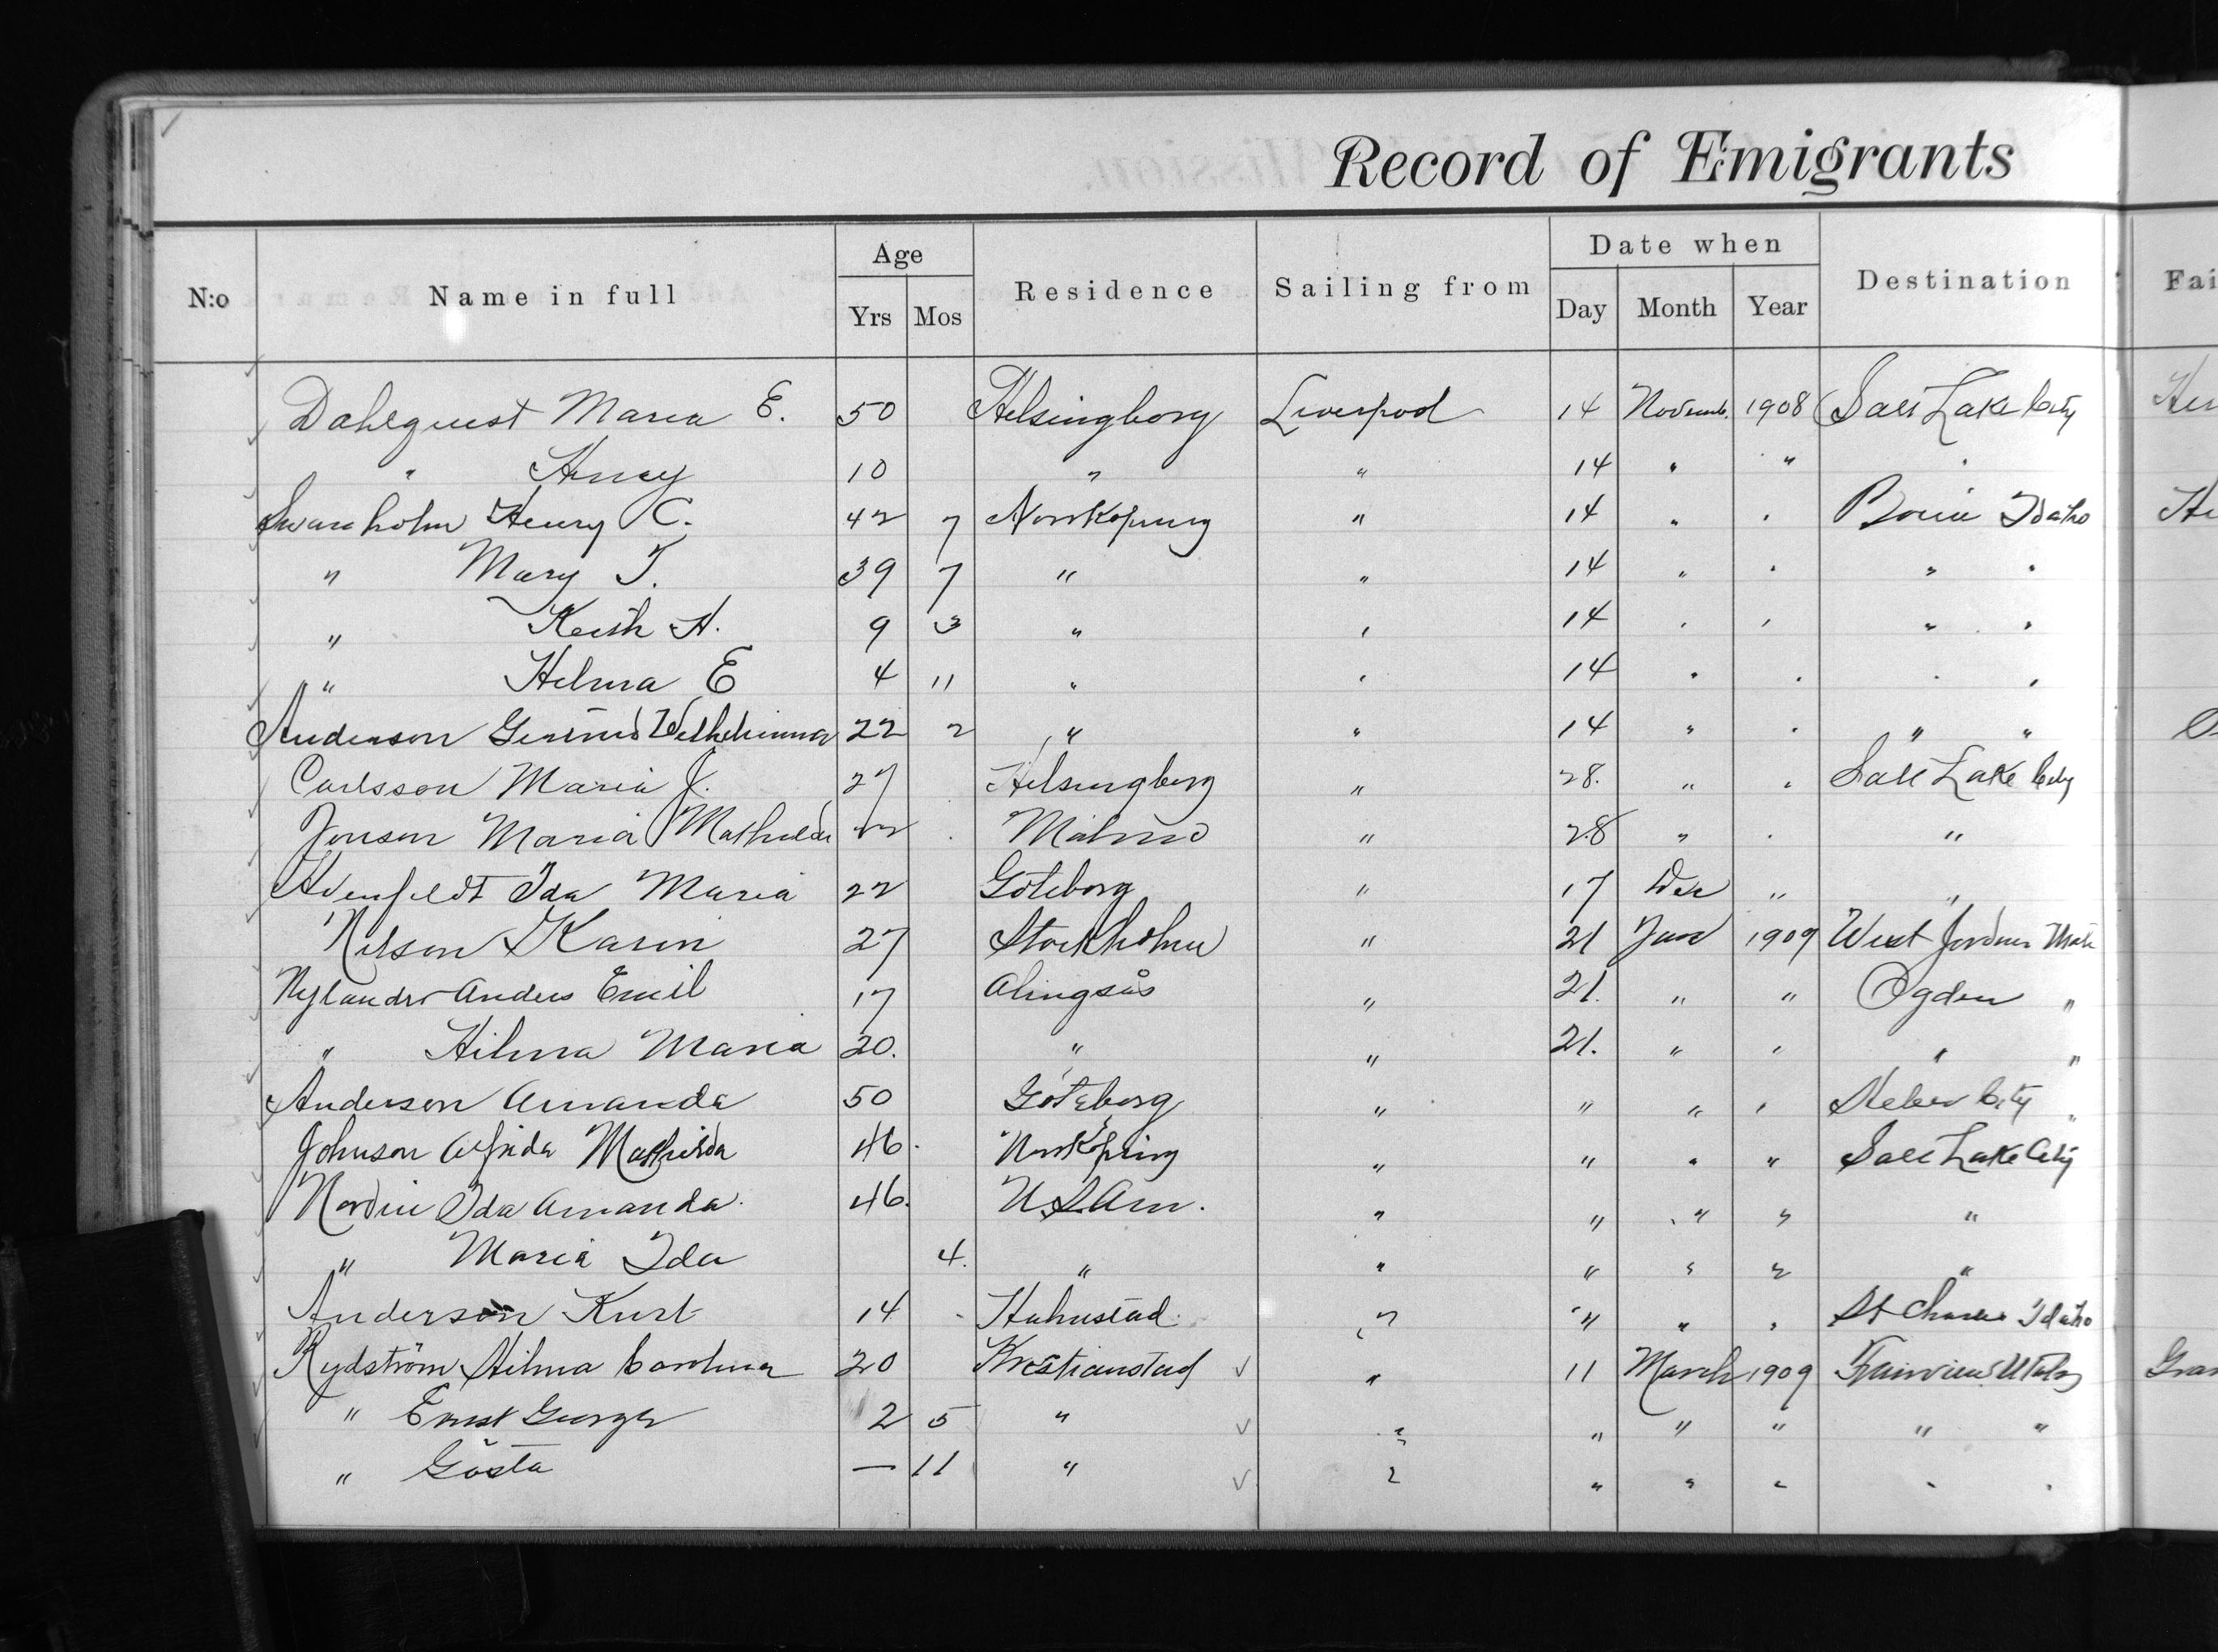 Record of Emigrants
N:o Name in full Age Yrs Mos Residence Sailing from Date when Day Month Year Destination Fai
Dahlquist Maria E. 50 Helsingborg Liverpool 14 Novemb. 1908 Salt Lake City
" 10 " " 14 " " "
Swanholm Henry C. 42 7 Norrköping " 14 " " Boise Idaho
" Mary T. 39 7 " " 14 " " " "
" Keith H. 9 3 " " 14 " " " "
" Helma E 4 11 " " 14 " " " "
Anderson Wilhelmina 22 2 " " 14 " " " "
Carlsson Maria J. 27 Helsingborg " 28. " " Salt Lake City
Jonson Maria Mathilda Malmö " 28 " " "
Ida Maria 22 Göteborg " 17 Dec " "
Nilson Karin 27 Stockholm " 21 Jan 1909 West Jordan Utah
Nylander Anders Emil 17 Alingsås " 21. " " Ogden "
" Hilma Maria 20. " " 21. " " " "
Anderson Amanda 50 Göteborg " " " " Heber City "
Johnson Alfrida Mathilda 46. Norrköping " " " " Salt Lake City
Nordin Ida Amanda. 46. U.S.Am. " " " " "
" Maria Ida 4. " " " " " "
Anderson Kurt 14 Halmstad " " " " St Charles Idaho
Rydström Hilma Carolina 20 Kristianstad " 11 March 1909 Fairview Utah
" Ernst George 2 5 " " " " " " "
" Gösta — 11 " " " " " " "